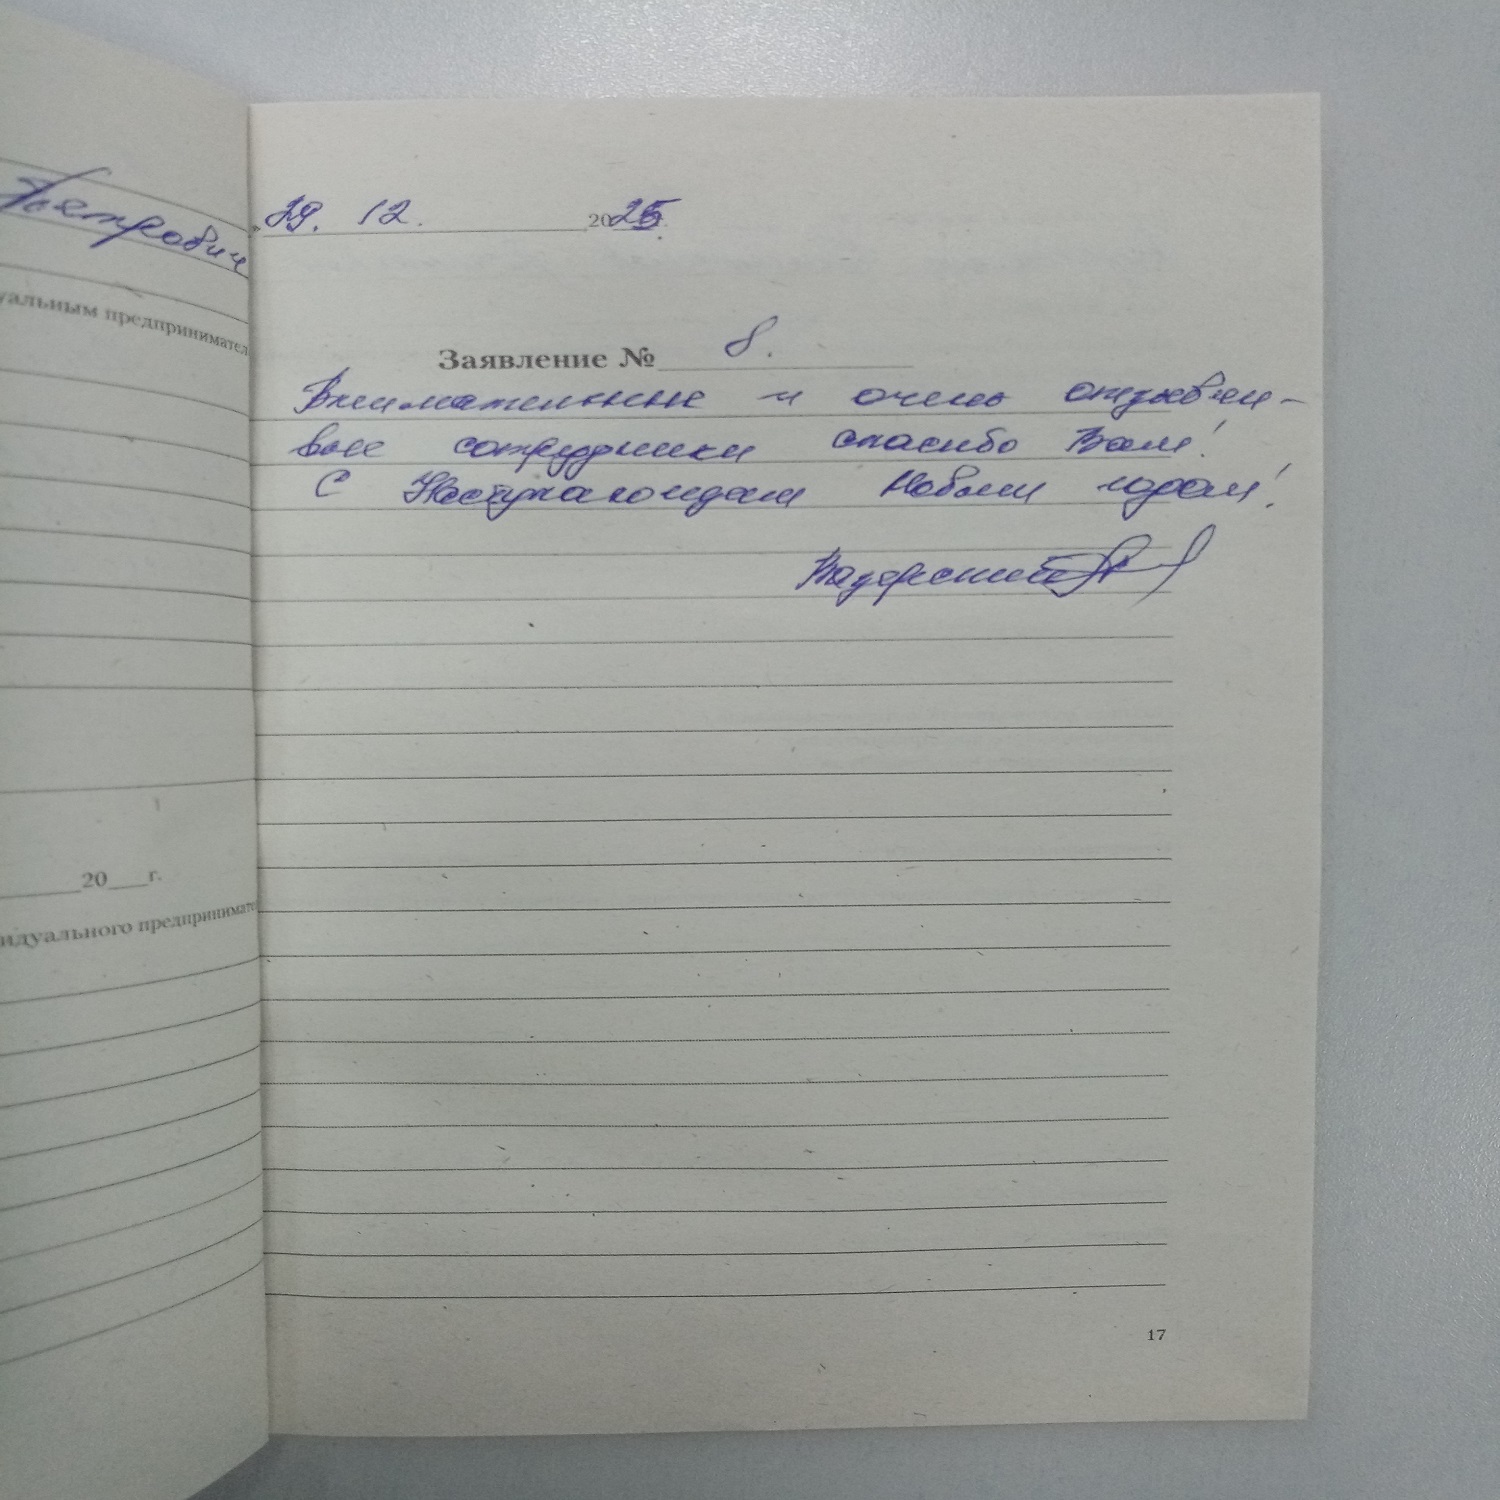 Петрович
уальным предпринимател
20___г.
идуального предпринимате
29. 12. 2025
Заявление № 8.
Внимательные и очень отзывчи-
вые сотрудники спасибо Вам!
С Наступающим Новым годом!
17